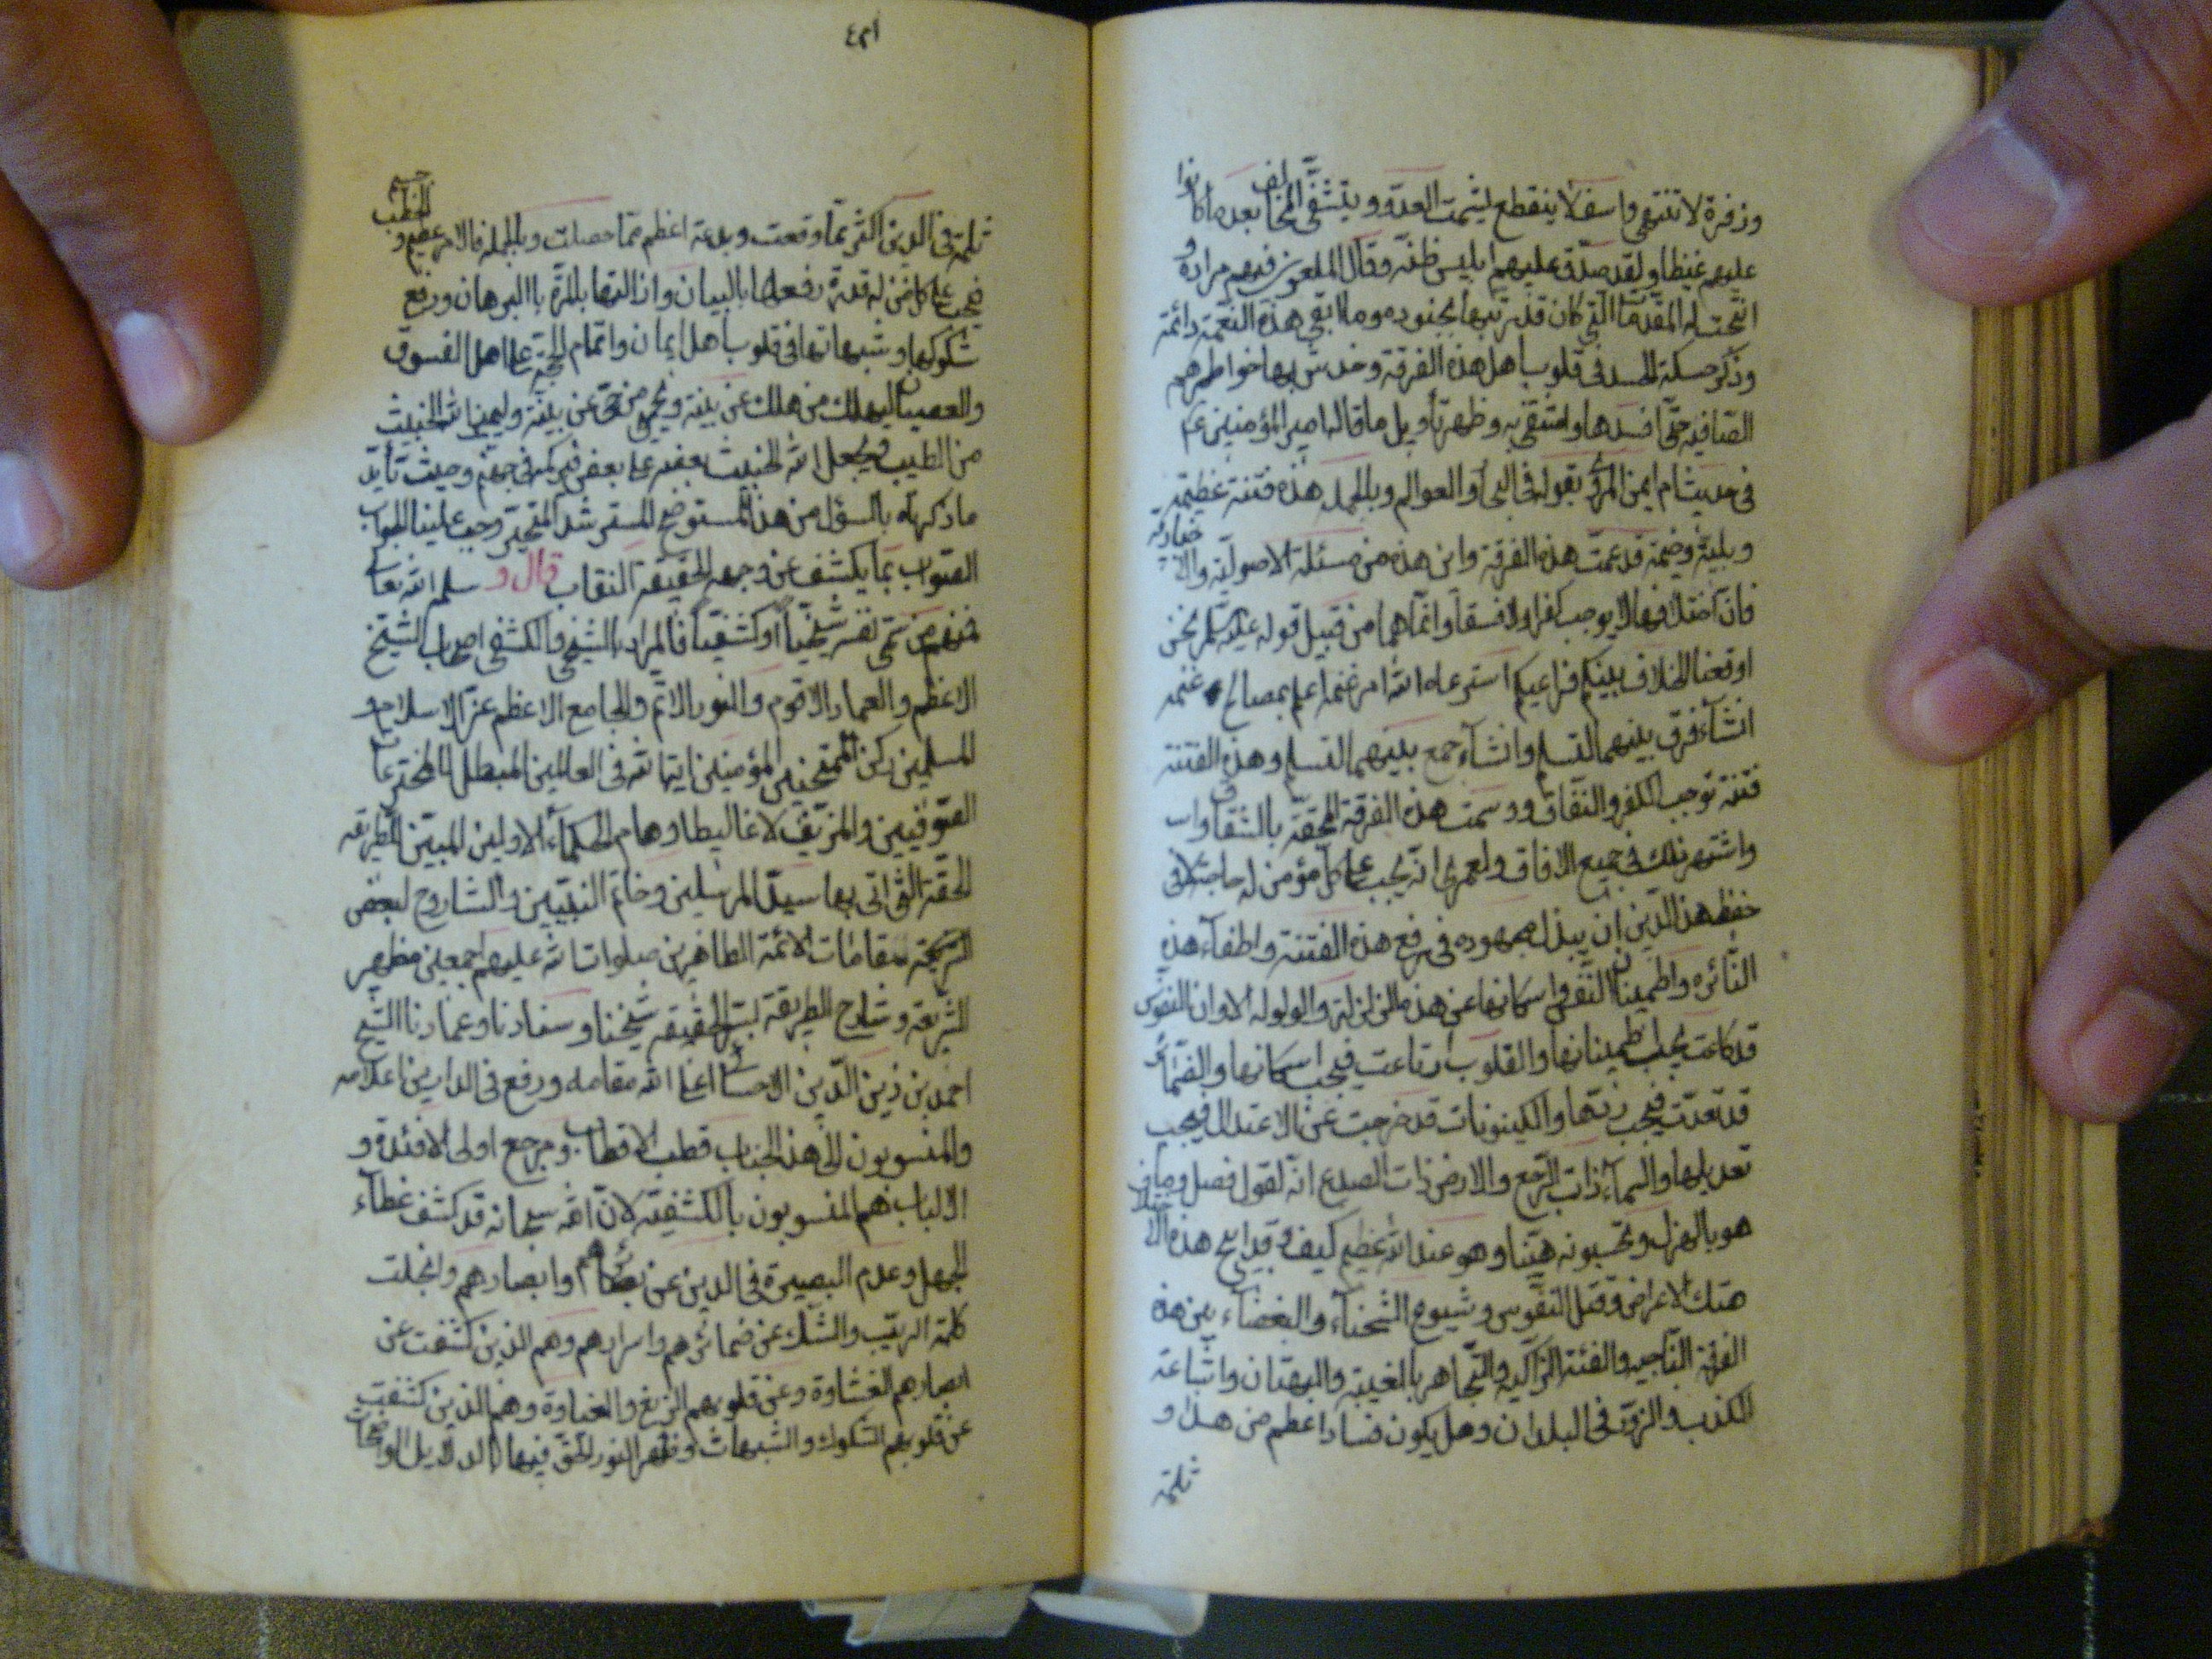 وزفرة لا تنتهي واسف لا ينقطع ليشمت العدوّ ويتشفّى المخالف بعد ما كانوا
عليهم غيظا ولقد صدّق عليهم ابليس ظنّه وقال الملعون فيهم مراده و
انتجت له المقدّمات التي كان قد رتبها بجنوده وما ابقى هذه النعمة دائمة
وذكر حسكة الحسد في قلوب اهل هذه الفرقة وخدش بها خواطرهم
الصّافيه حتّى افسدها وظهر تأويل ما قاله امير المؤمنين ع
في حديث ام ايمن المروي بقوله في البحار والعوالم وبالجملة هذه فتنة عظيمة
وبلية قد عمت هذه الفرقة واين هذه من مسئلة الاصوليّة والاخبارية
فان اختلافهما لا يوجب كفرا ولا فسقا وانّما هما من قبيل قوله عليه السلم نحن
اوقعنا الخلاف بينكم فراعيكم استرعاه الله امر غنمه اعلم بمصالح غنمه
انشاء فرق بينهما لتسلم وانشاء جمع بينهما لتسلم وهذه الفتنة
فتنة توجب الكفر والنفاق ووسمت هذه الفرقة المحقّة بالشقاوات
واشتهر ذلك في جميع الافاق ولعمري انه يجب على كل مؤمن له حاجة في
حفظ هذا الدّين ان يبذل مجهوده في رفع هذه الفتنة واطفآء هذه
النّائره واطمينان النفوس واسكانها عن هذه الزلزلة والولوله الا وان النفوس
قد كاعت يجب اطمينانها والقلوب ارتاعت فيجب اسكانها والضمائر
قد تعدّت فيجب ردّها والكينونات قد خرجت عن الاعتدال فيجب
تعديلها والسمآء ذات الرّجع والارض ذات الصدع انه لقول فصل وما
هو بالهزل وتحسبونه هيّنا وهو عند الله عظيم كيف وقد انتج هذه الاختلاف
هتك الاعراض وقتل النفوس وشيوع الشحنآء والبغضآء بين هذه
الفرقة النّاجيه والفئة الزّاكيه والتّجاهر بالغيبة والبهتان واتّباعه
الكذب والزور في البلدان وهل يكون فسادا اعظم من هذا و
ثلمة
٤٢١
ثلمة في الدين اكثر ممّا وقعت وبدعة اعظم ممّا حصلت وبالجملة فالامر عظيم والخطب جسيم
فيجب على كل من له قدرة رفعها بالبيان وازالتها بالمرّة بالبرهان ورفع
شكوكها وشبهاتها في قلوب اهل ايمان واتمام الحجّة على اهل الفسوق
والعصيان ليهلك من هلك عن بيّنة ويحيى من حيّ عن بيّنة وليميز الله الخبيث
من الطيب ويجعل الله الخبيث بعضه على بعض فيركمه في جهنّم وحيث تأيّد
ما ذكرناه بالسؤل من هذا المستوضح المسترشد المتحيّر وجب علينا الجواب
الصّواب بما يكشف عن وجهه الحقيقة النقاب قال و سلمه الله تعالى
فمنهم من سمّى نفسه شيخيّاً او كشفيّاً فالمراد بالشيخي والكشفي اصحاب الشيخ
الاعظم والعماد الاقوم والنور الاتم والجامع الاعظم عزّ الاسلام و
المسلمين ركن المؤمنين الممتحنين اية الله في العالمين المبطل لمخترعات
الصّوفيين والمزيّف لاغاليط اوهام الحكمآء الاولين المبيّن الطريقه
الحقّة الّتي اتى بها سيّد المرسلين وخاتم النبيّين والشارح لبعض
مقامات الائمة الطاهرين صلوات الله عليهم اجمعين مظهر
الشّريعة وشارح الطريقة لبّ الحقيقه شيخنا وسنادنا وعمادنا الشّيخ
احمد بن زين الدّين الاحسائي اعلى الله مقامه ورفع في الدارين اعلامه
والمنسوبون الى هذا الجناب قطب الاقطاب ومرجع اولى الافئدة و
الالباب هم المنسوبون بالكشفيّة لانّ الله سبحانه قد كشف غطآء
الجهل وعدم البصيرة في الدين عن بصائرهم وابصارهم وانجلت
ظلمة الريب والشّك عن ضمائرهم واسرارهم وهم الذين كشفت عن
ابصارهم الغشاوة وعن قلوبهم الزيغ والغباوة وهم الذين كشفت
عن قلوبهم الشكوك والشبهات وظهر النور الحقّ فيها بالدلائل الواضحات